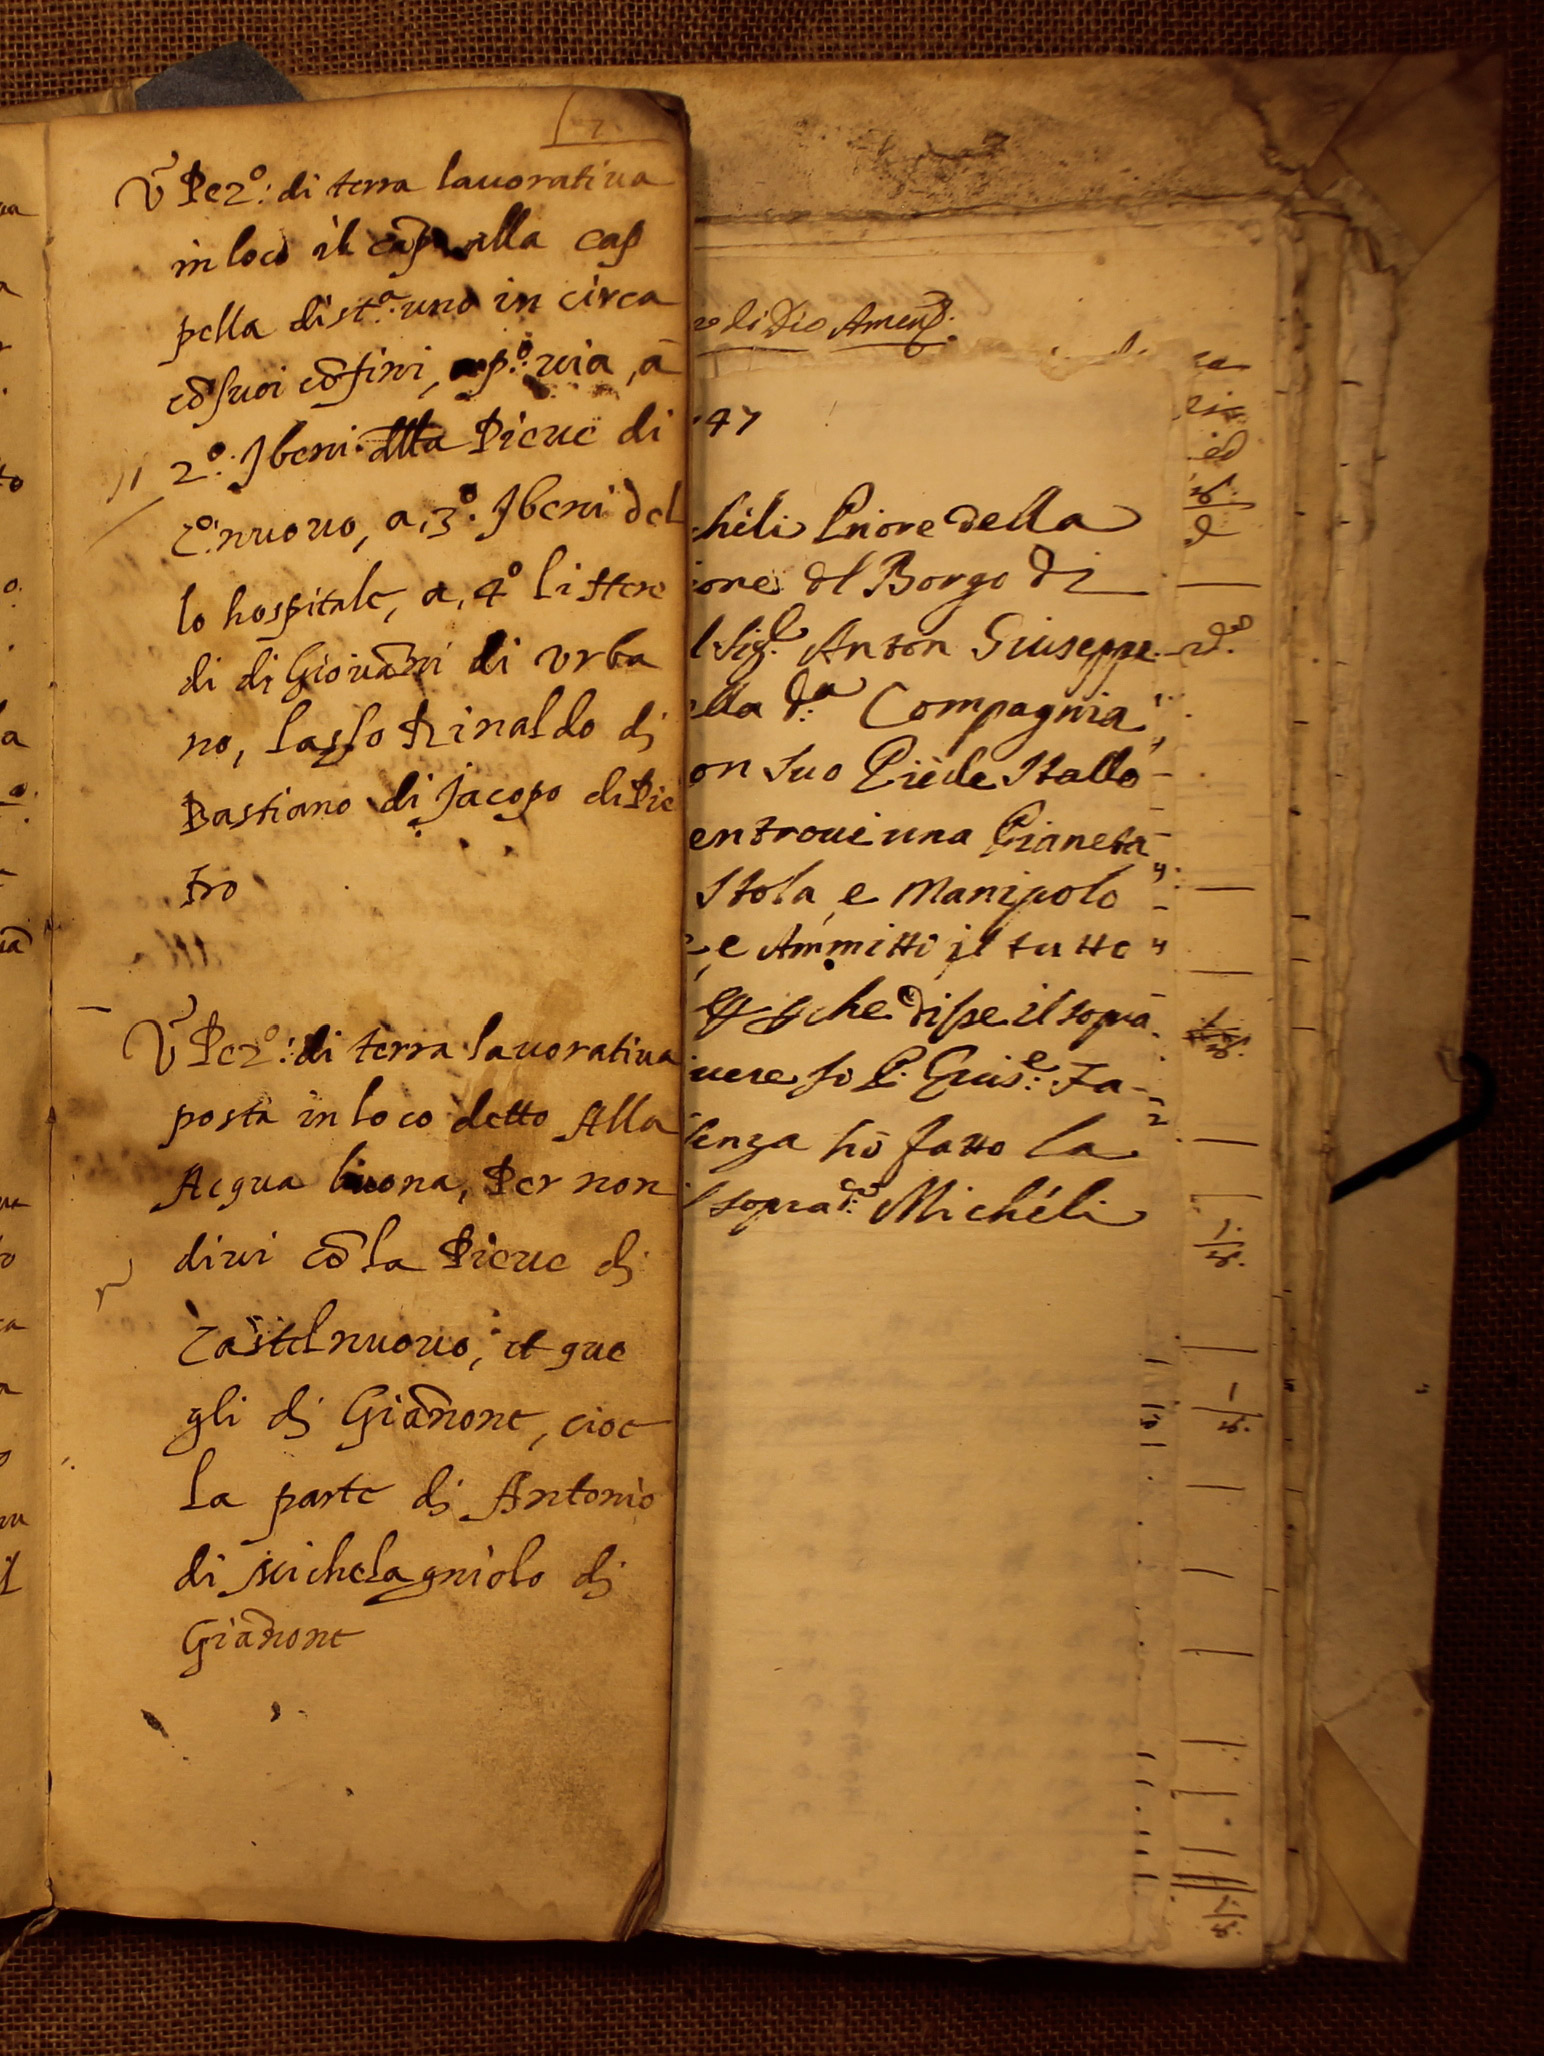 7
Ũ Pez.º: di terra lauoratiua
in loco il cãp alla cap
pella dist.ª uno in circa
cõ suoi cõfini, a p.º uia, a
2.º J beni dlla Pieue di
C.º nuouo, a, 3.º J beni del
lo hospitale, a, 4º li Here
di di Giouãni di Vrba
no, lasso Rinaldo di
Bastiano di Jacopo di Pie
tro
Ũ Pez.º: di terra lauoratiua
posta in loco detto Alla
Acqua buona, Per non
diui cõ la Pieue di
Castelnuouo, et que
gli di Giãnone, cioe
la parte di Antonio
di Michelagniolo di
Giãnone
di Dio Amen
47
cheli Priore della
ione dl Borgo di
l Sig.r Anton Giuseppe
ella d.ª Compagnia
on suo Piède Stallo
entroui una Pianeta
Stola, e Manipolo
e Ammitti il tutto
che disse il sopra
iuere Io P. Giuse.e Fa-
senza hò fatto la
l sopra d.º Michéli